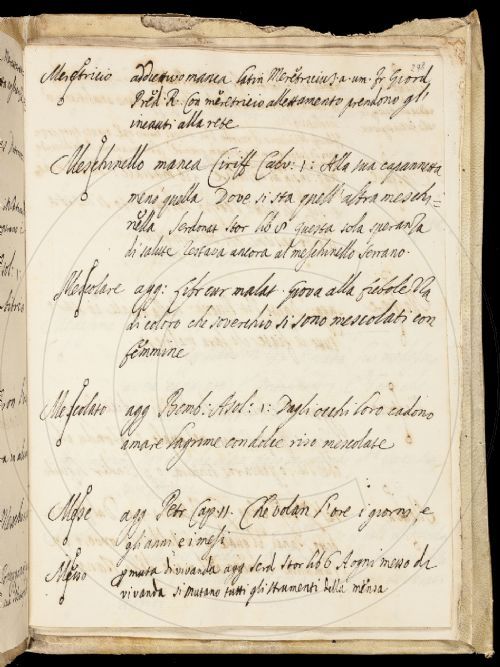 298
Meretricio addiettivo manca latin Meretricius.a.um. fr Giord
Pred. R. Con meretricio allettamento prendono gl'
incauti alla rete
Meschinello manca Ciriff Calv: 1: Alla sua capannetta
menò quella Dove si sta quell'altra meschi=
nella, Serdonat Stor lib 8 Questa sola speranza
di salute restava ancora al meschinello Serrano.
Mescolare agg: libr cur malat. Giova alla fiebolezza
di coloro che soverchio si sono mescolati con
femmine
Mescolato agg Bemb: Asol: 1: Dagli occhi loro cadono
amare lagrime con dolce riso mescolate
Mese agg Petr Cap. 11. Che volan l'ore i giorni, e
gli anni e i mesi
Messo muta di vivanda agg Serd Stor lib 6 A ogni messo di
vivanda si mutano tutti gli strumenti della mensa